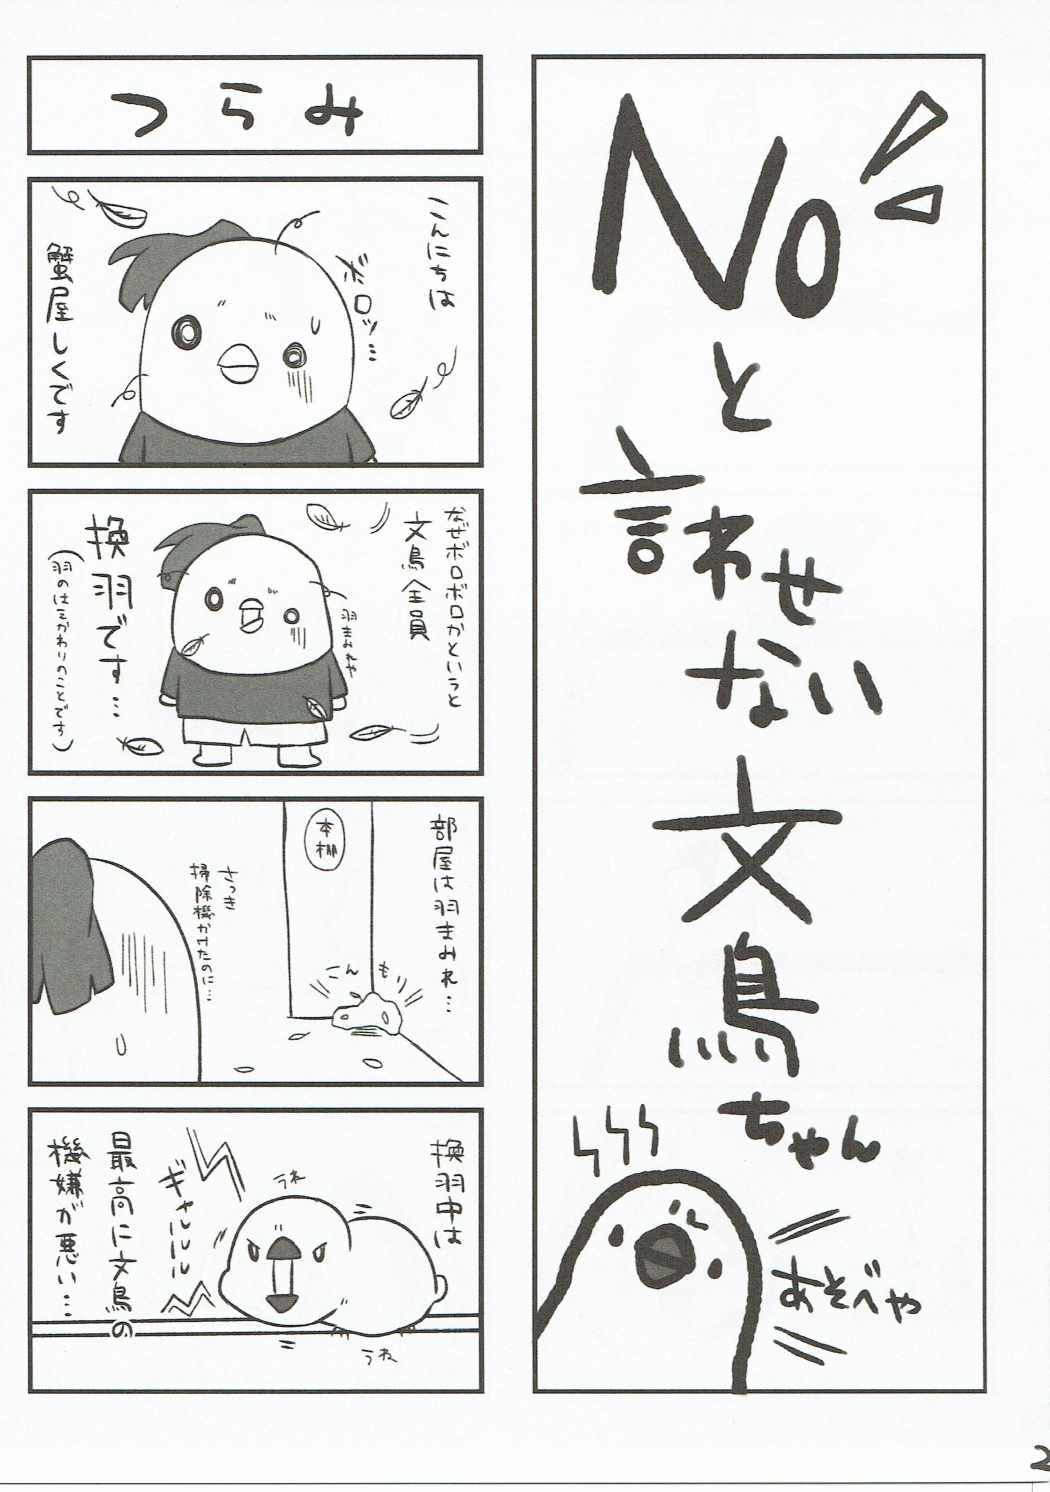 Noと
言わせ
ない
文鳥
ちゃん
あそべや
つらみ
こんにちは
ボロッ…
蟹屋しくです
なぜボロボロかというと
文鳥全員
羽まみれや
換羽です…
(羽のはえかわりのことです)
部屋は羽まみれ…
本棚
こんもり
さっき
掃除機かけたのに…
換羽中は
うね
ギャルルル
最高に文鳥の
機嫌が悪い…
うね
2